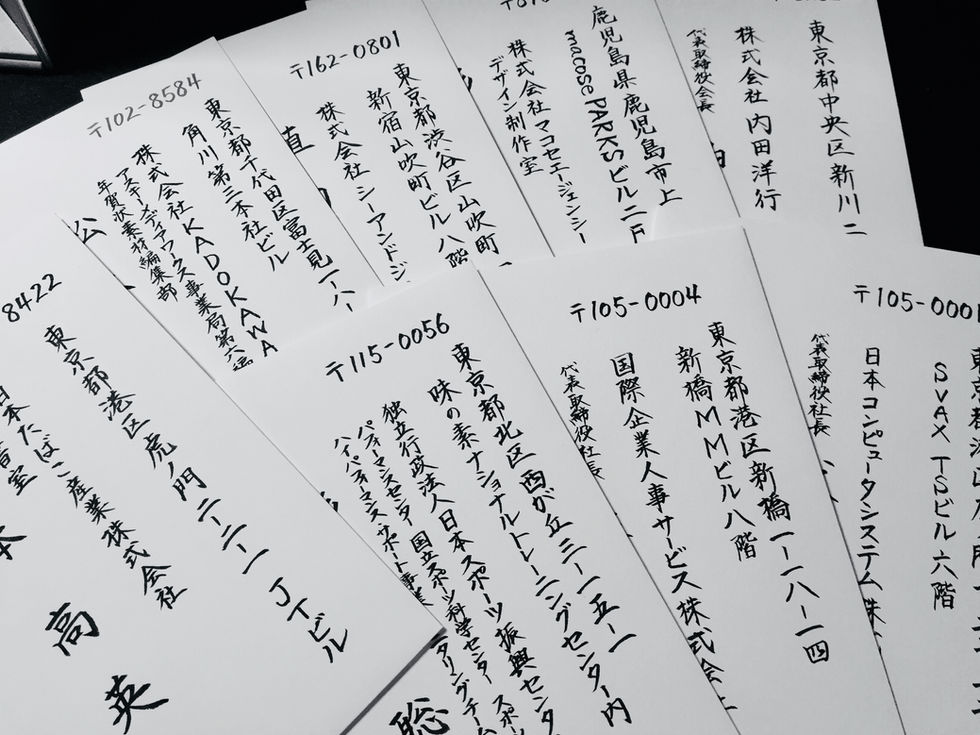 〒102-8584
東京都千代田区富士見一-八-
角川第三本社ビル
株式会社KADOKAWA
アスキー・メディアワークス事業局第六編
年賀状素材編集部
公
〒162-0801
東京都渋谷区山吹町
新宿山吹町ビル八階
株式会社シーアンドジ
直
鹿児島県鹿児島市上
macose PARKSビル二F
株式会社マコセエージェンシー
デザイン制作室
東京都中央区新川二
株式会社内田洋行
代表取締役会長
8422
東京都港区虎ノ門二-二-一 JTビル
日本たばこ産業株式会社
室
本
高英
〒115-0056
東京都北区西が丘三-一五-一
味の素ナショナルトレーニングセンター内
独立行政法人日本スポーツ振興センタ
パフォーマンスセンター 国立スポーツ科学センター スポー
ハイパフォーマンスサポート事業
タリングチーム
聡
〒105-0004
東京都港区新橋一-一八-一四
新橋MMビル八階
国際企業人事サービス株式会
代表取締役社長
〒105-0001
SVAX TSビル六階
日本コンピュータシステム株
代表取締役社長